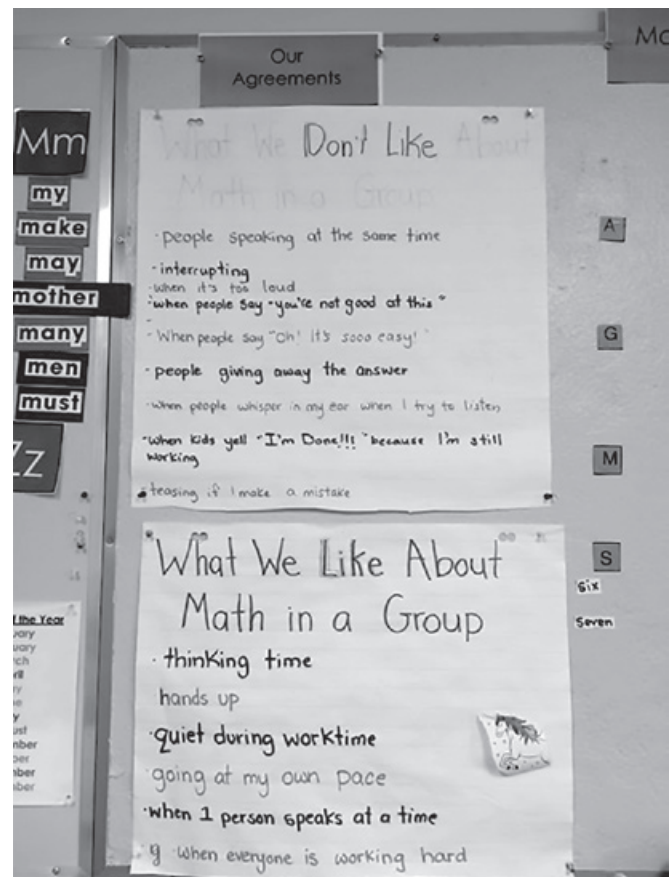 Our
Agreements
Mm
my
make
may
mother
many
men
must
Zz
What We Don't Like About
Math in a Group
· people speaking at the same time
· interrupting
· when it's too loud
· when people say "you're not good at this"
· When people say "Oh! It's sooo easy!"
· people giving away the answer
· when people whisper in my ear when I try to listen
· when kids yell "I'm Done!!!" because I'm still
working
· teasing if I make a mistake
What We Like About
Math in a Group
· thinking time
hands up
· quiet during worktime
· going at my own pace
· when 1 person speaks at a time
· when everyone is working hard
A
G
M
S
six
seven
the Year